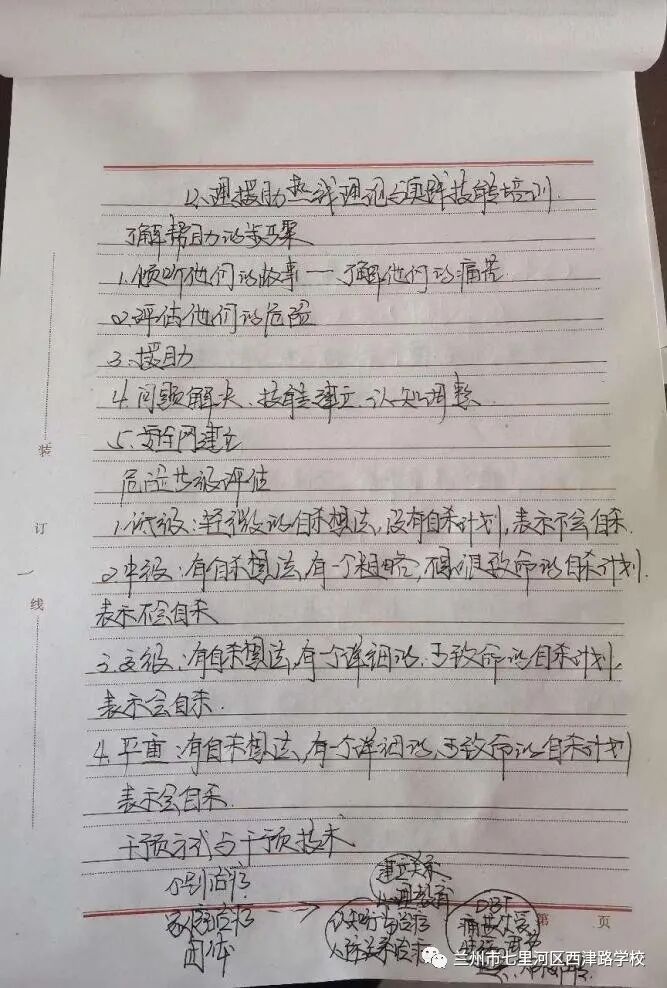 心理援助热线理论与实践技能培训
了解帮助的步骤
1.倾听他们的故事一了解他们的痛苦
2.评估他们的危险
3.援助
4.问题解决、技能建立、认知调整
5.安全网建立
危险等级评估
1.低级:轻微的自杀想法,没有自杀计划,表示不会自杀.
2.中级:有自杀想法,有一个粗略,不是很致命的自杀计划.
表示不会自杀
3.高级:有自杀想法,有一个详细的、可致命的自杀计划,
表示会自杀.
4.严重:有自杀想法,有一个详细的、可致命的自杀计划
表示会自杀.
干预方式与干预技术
个别治疗
家庭治疗
团体
建立关系
心理教育
认知行为治疗
人际关系治疗
DBT
痛苦忍受
装
订
线
第 页
兰州市七里河区西津路学校